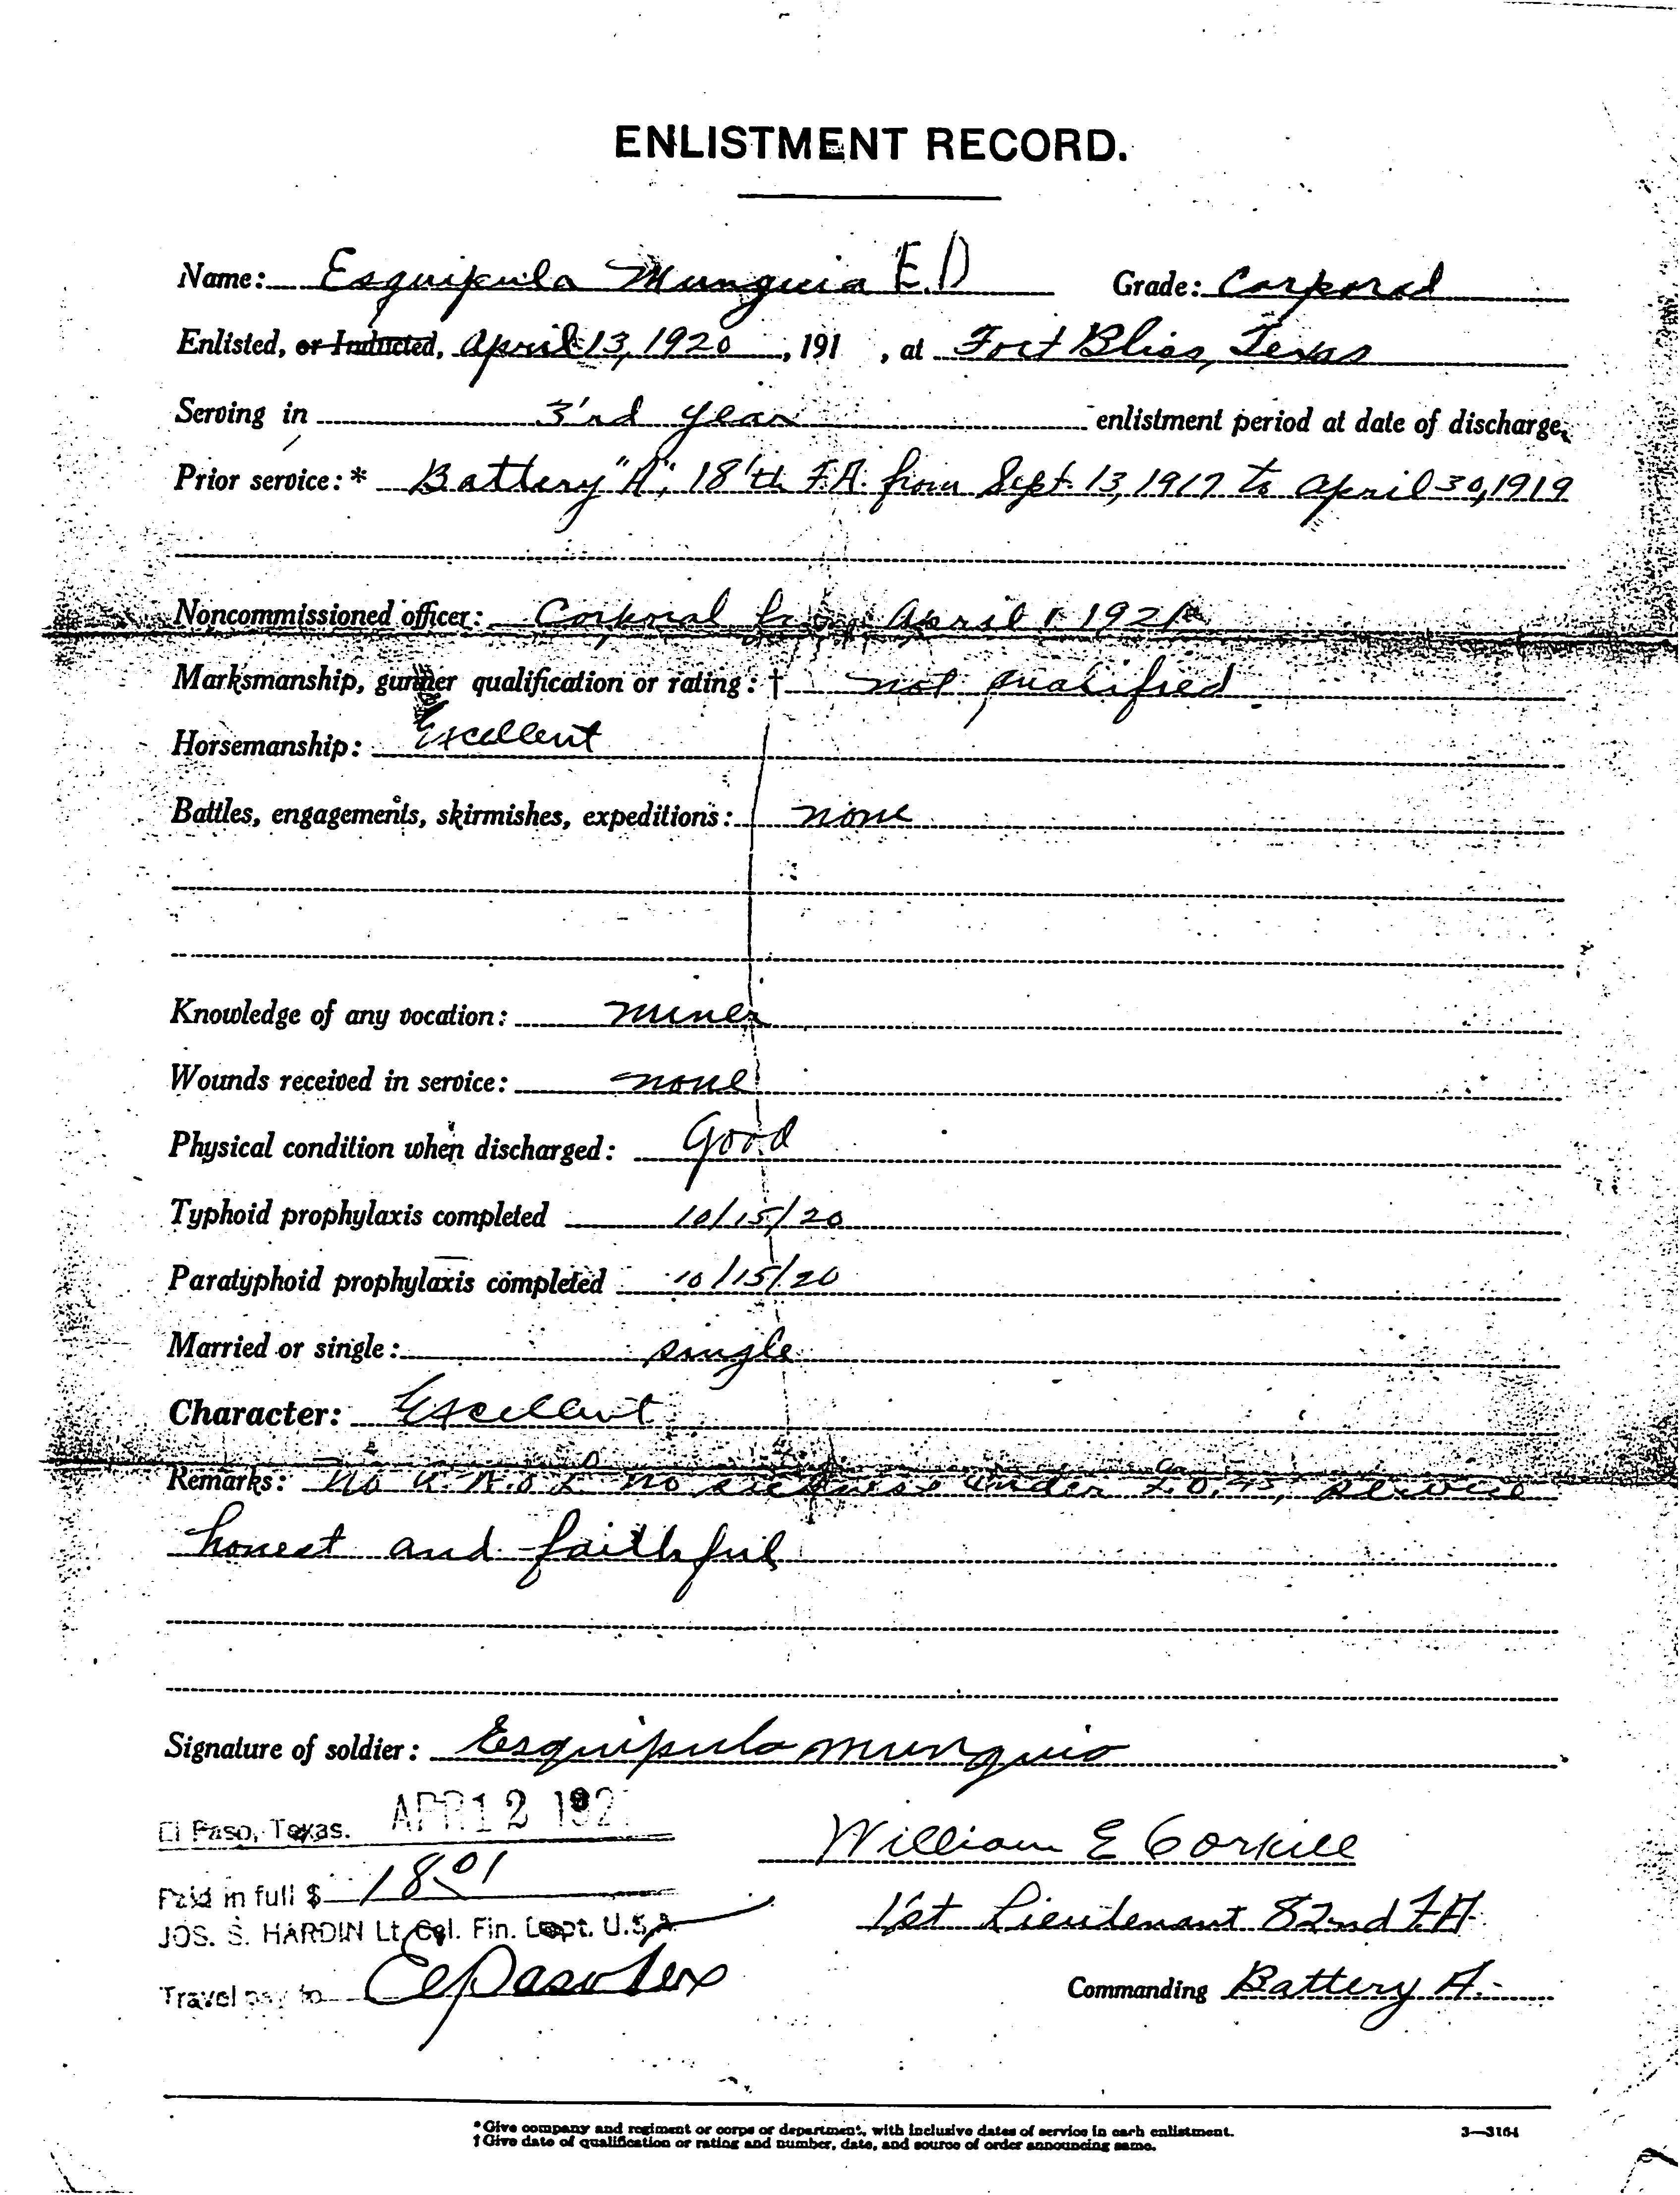 ENLISTMENT RECORD.
Name: Esquipula Munguia E.D Grade: Corporal
Enlisted, or Inducted, April 13, 1920, 191 , at Fort Bliss, Texas
Serving in 3'rd year enlistment period at date of discharge.
Prior service: * Battery "A", 18'th F.A. from Sept. 13, 1917 to April 30, 1919
Noncommissioned officer: Corporal April 1 1921
Marksmanship, gunner qualification or rating: † not qualified
Horsemanship: Excellent
Battles, engagements, skirmishes, expeditions: none
Knowledge of any vocation: miner
Wounds received in service: none
Physical condition when discharged: Good
Typhoid prophylaxis completed 10/15/20
Paratyphoid prophylaxis completed 10/15/20
Married or single: single
Character: Excellent
Remarks: No A.W.O.L no sickness under service
honest and faithful
Signature of soldier: Esquipula Munguia
El Paso, Texas. APR 12 192
William E Corkill
Paid in full $ 18.01
1st Lieutenant 82nd F.A.
JOS. S. HARDIN Lt. Col. Fin. Dept. U.S.A.
Travel pay to El Paso Tex
Commanding Battery A.
* Give company and regiment or corps or department, with inclusive dates of service in each enlistment.
† Give date of qualification or rating and number, date, and source of order announcing same.
3—3164